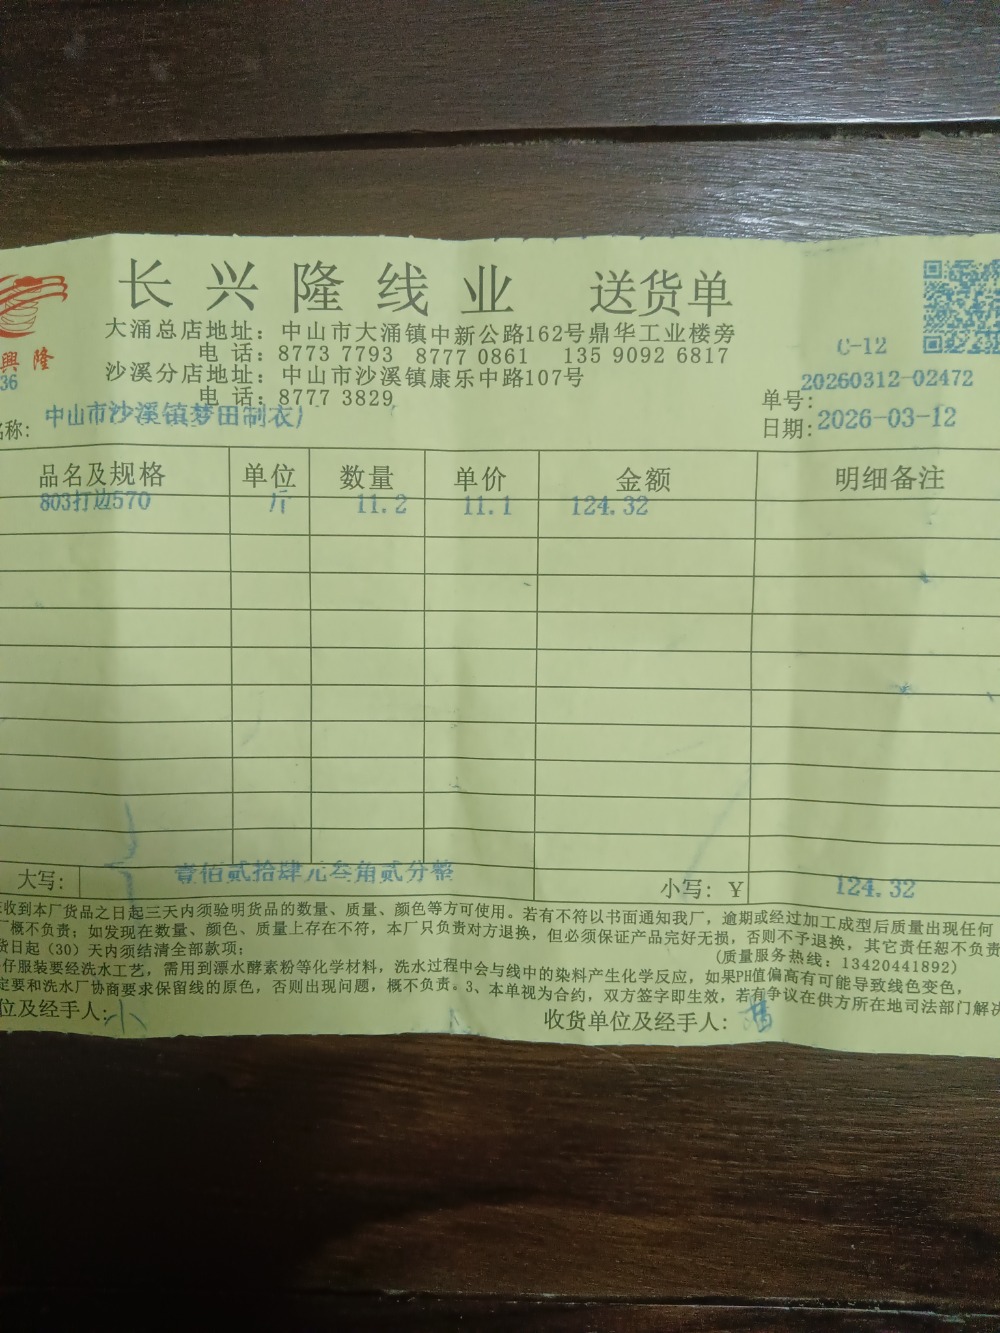 长兴隆线业 送货单
興隆
大涌总店地址：中山市大涌镇中新公路162号鼎华工业楼旁
电 话：8773 7793 8777 0861 135 9092 6817
C-12
沙溪分店地址：中山市沙溪镇康乐中路107号
电 话：8777 3829
36
单号：20260312-02472
名称：中山市沙溪镇梦田制衣厂
日期：2026-03-12
品名及规格 单位 数量 单价 金额 明细备注
803打边570 斤 11.2 11.1 124.32
大写：壹佰贰拾肆元叁角贰分整 小写：￥ 124.32
收到本厂货品之日起三天内须验明货品的数量、质量、颜色等方可使用。若有不符以书面通知我厂，逾期或经过加工成型后质量出现任何
厂概不负责；如发现在数量、颜色、质量上存在不符，本厂只负责对方退换，但必须保证产品完好无损，否则不予退换，其它责任恕不负责
货日起（30）天内须结清全部款项；
(质量服务热线：13420441892)
仔服装要经洗水工艺，需用到漂水酵素粉等化学材料，洗水过程中会与线中的染料产生化学反应，如果PH值偏高有可能导致线色变色，
定要和洗水厂协商要求保留线的原色，否则出现问题，概不负责。3、本单视为合约，双方签字即生效，若有争议在供方所在地司法部门解决
位及经手人：小 收货单位及经手人：